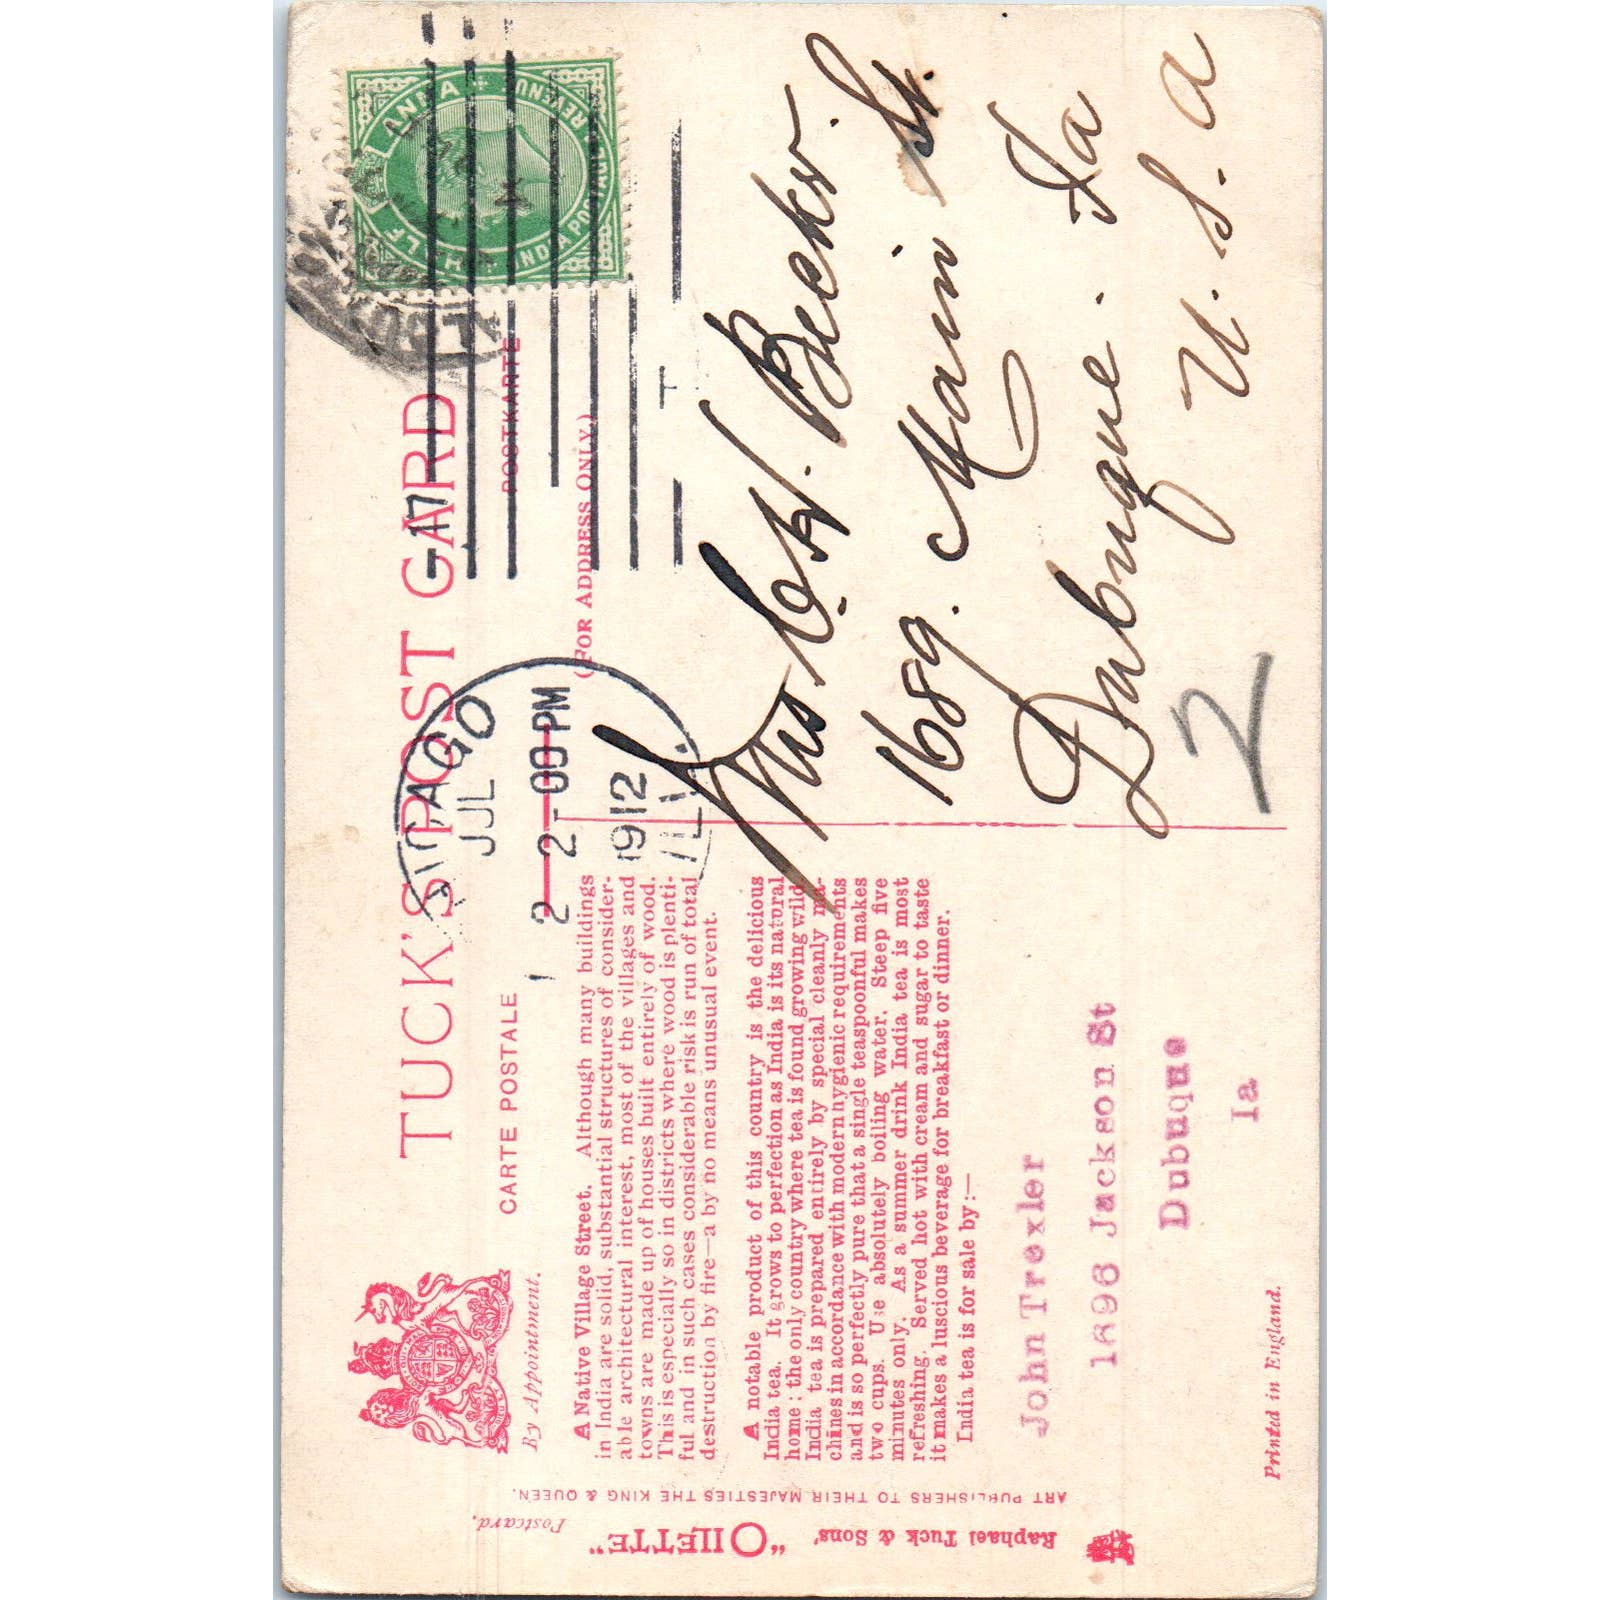 TUCK'S POST CARD
CARTE POSTALE
POSTKARTE
By Appointment.
(FOR ADDRESS ONLY.)
HALF ANNA
INDIA POSTAGE & REVENUE
CHICAGO
JUL
2-00PM
1912
ILL.
A Native Village Street. Although many buildings
in India are solid, substantial structures of consider-
able architectural interest, most of the villages and
towns are made up of houses built entirely of wood.
This is especially so in districts where wood is plenti-
ful and in such cases considerable risk is run of total
destruction by fire—a by no means unusual event.
A notable product of this country is the delicious
India tea. It grows to perfection as India is its natural
home; the only country where tea is found growing wild.
India tea is prepared entirely by special cleanly ma-
chines in accordance with modern hygienic requirements
and is so perfectly pure that a single teaspoonful makes
two cups. Use absolutely boiling water. Steep five
minutes only. As a summer drink India tea is most
refreshing. Served hot with cream and sugar to taste
it makes a luscious beverage for breakfast or dinner.
India tea is for sale by:—
John Trexler
1696 Jackson St
Dubuque
Ia
Becker.
1689. Main St.
Dubuque. Ia
U. S. A
2
Raphael Tuck & Sons'
"OILETTE"
Postcard.
ART PUBLISHERS TO THEIR MAJESTIES THE KING & QUEEN.
Printed in England.